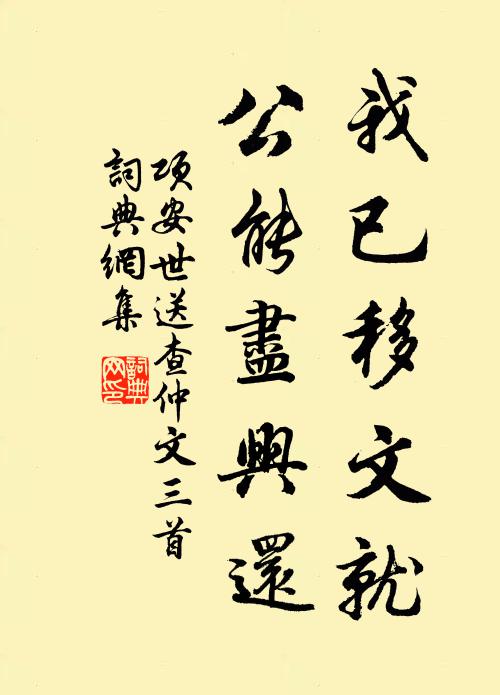 我已移文就
公能盡興還
項安世送查仲文三首
詞典網集
詞典
网印